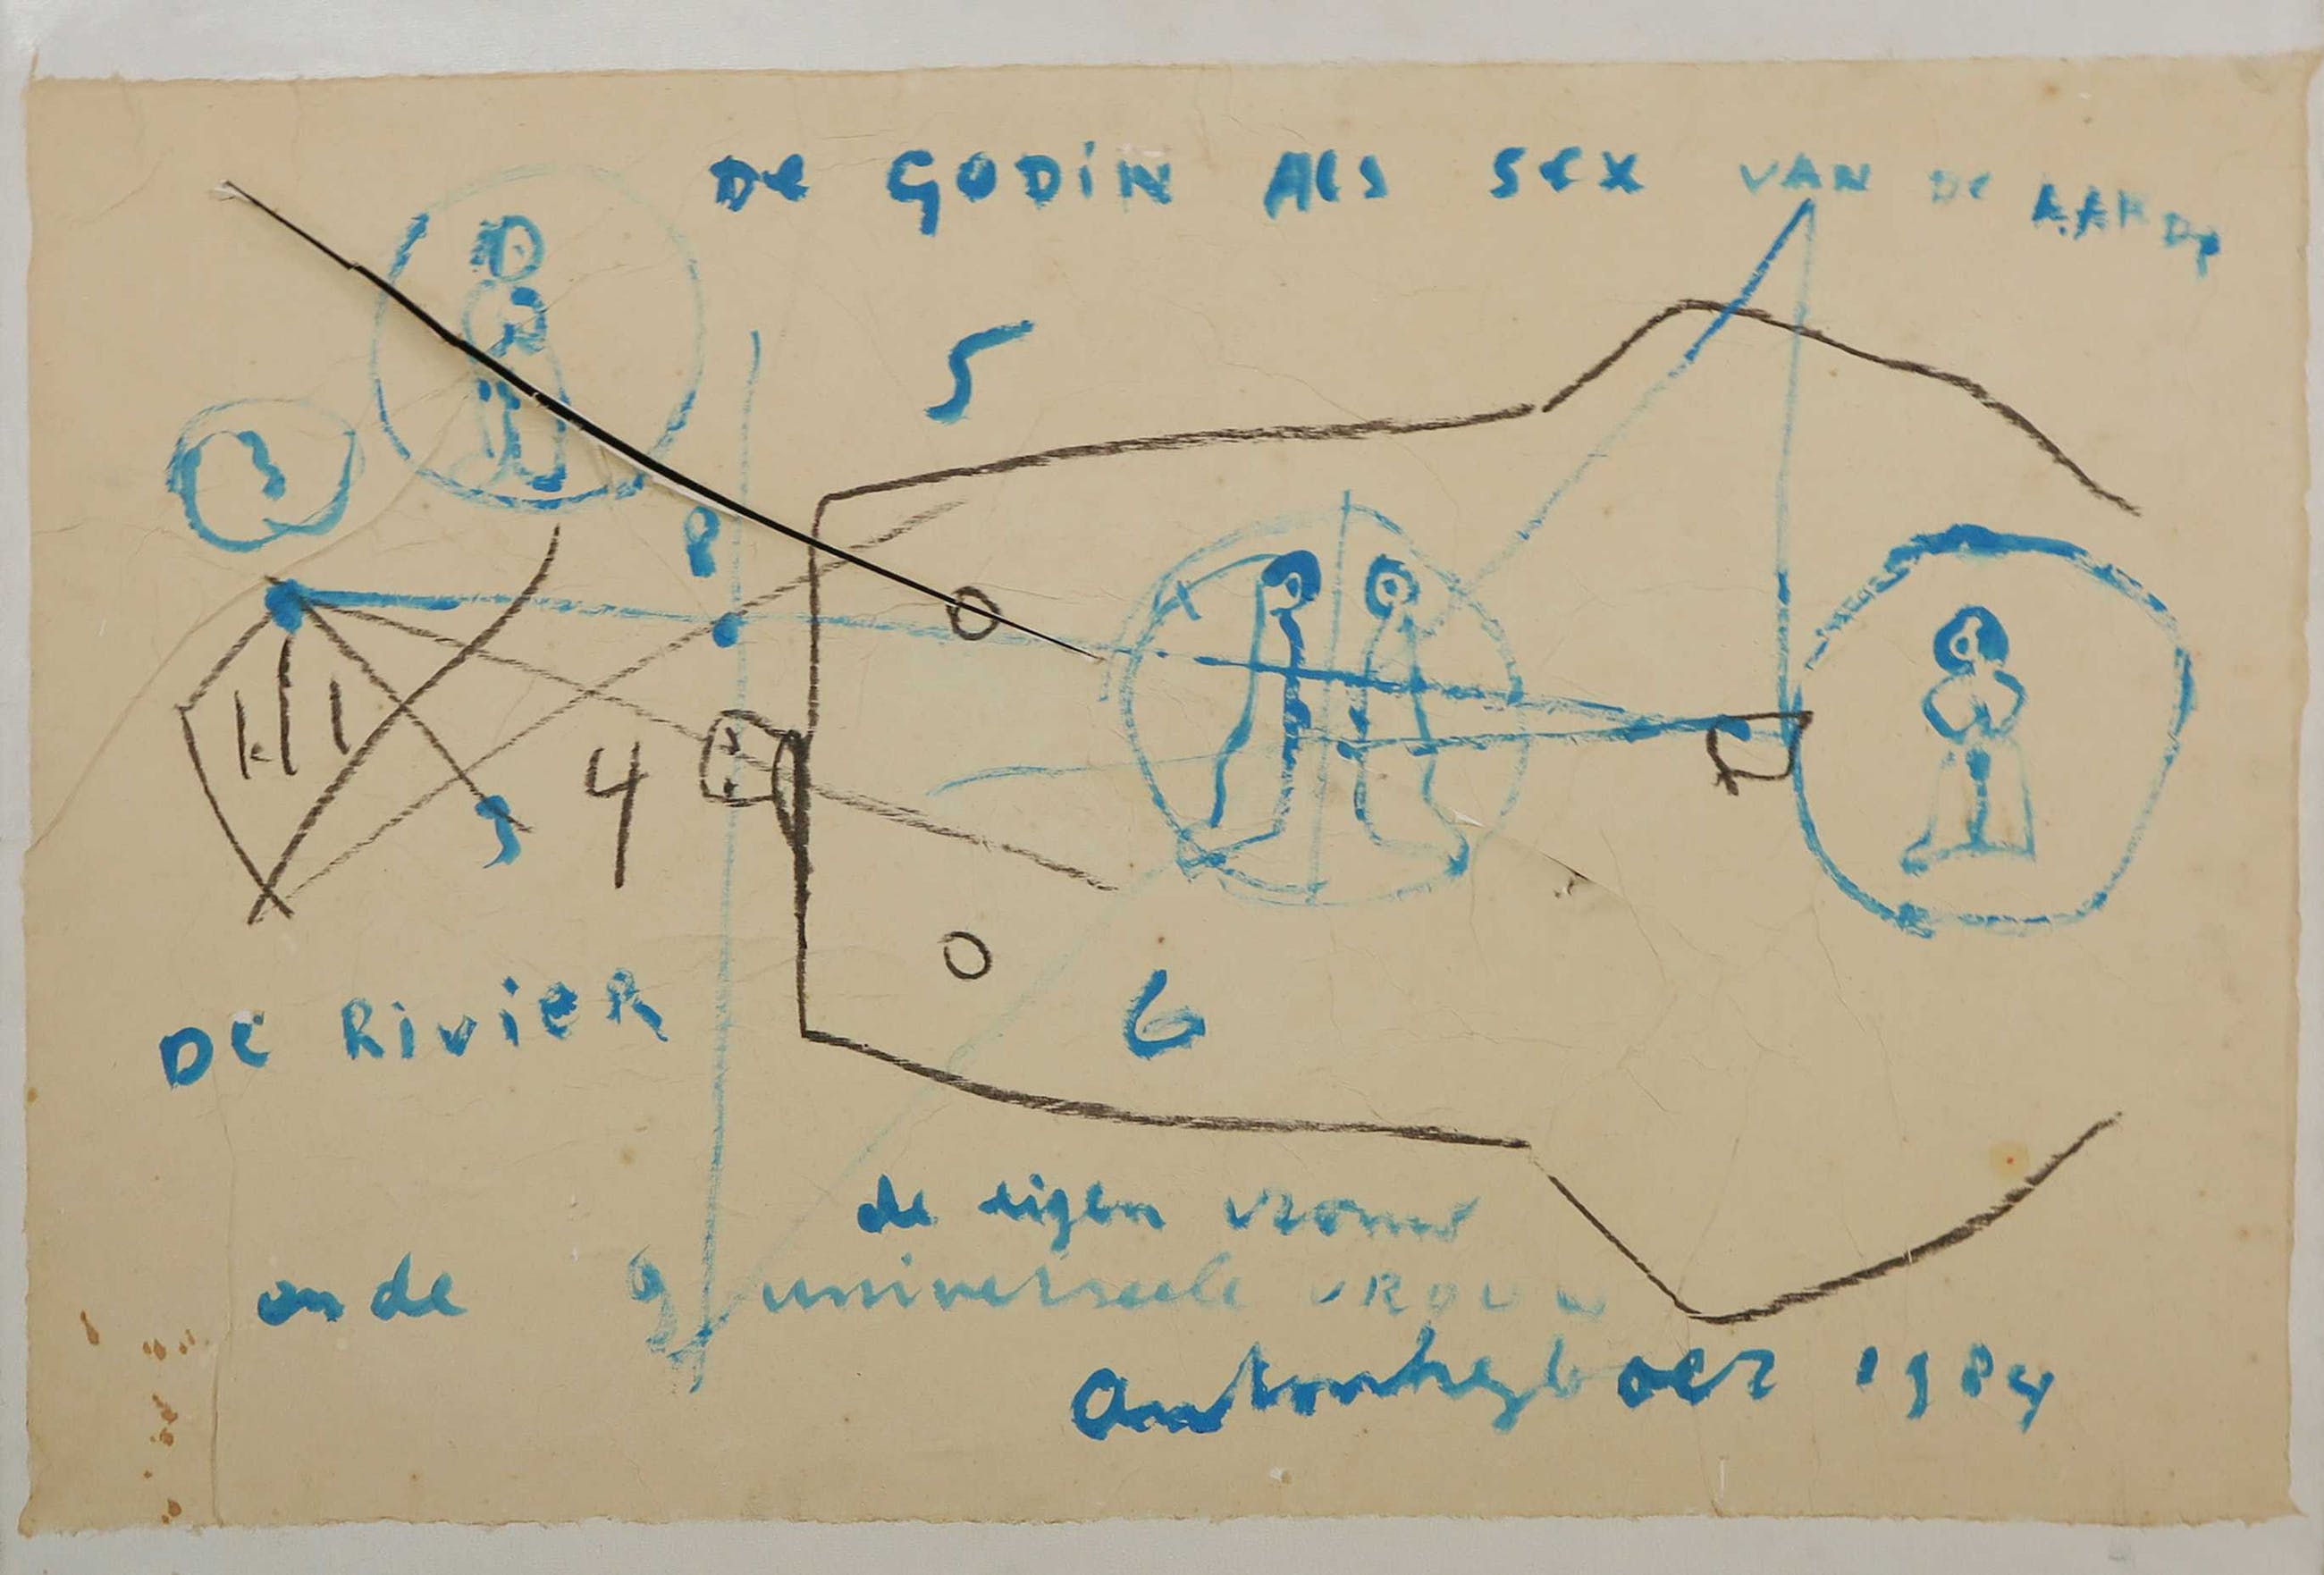 De GODiN ALS SEX VAN De AARDe
5
8
3
4
DE RiViER
6
de eigen vrouw
en de universeele VROUW
Antonheyboer 1984